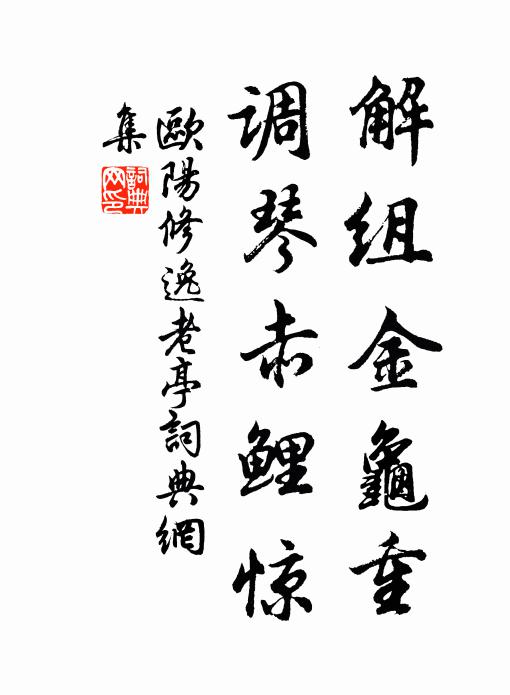 解组金龜重
调琴赤鲤惊
歐陽修逸老亭詞典網
集
詞典网印